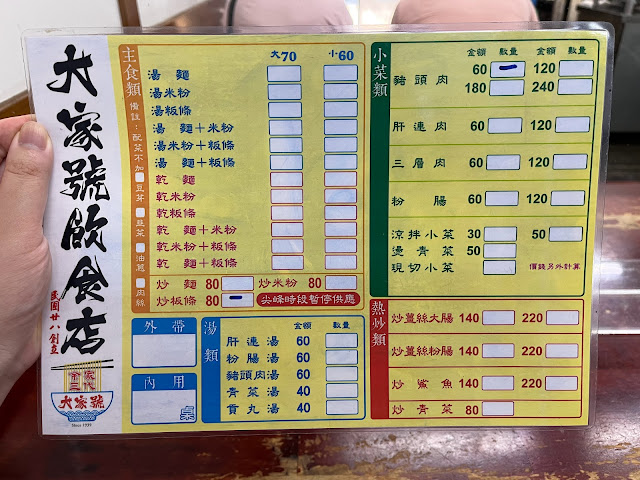 大家號飲食店
民國廿八創立
余家三代
大家號
Since 1939
主食類
備註：配菜不加 豆芽 韭菜 油蔥 肉絲
大70 小60
湯麵
湯米粉
湯板條
湯麵＋米粉
湯米粉＋板條
湯麵＋板條
乾麵
乾米粉
乾板條
乾麵＋米粉
乾米粉＋板條
乾麵＋板條
炒麵 80 炒米粉 80
炒板條 80 尖峰時段暫停供應
外帶
內用
桌
湯類
金額 數量
肝連湯 60
粉腸湯 60
豬頭肉湯 60
青菜湯 40
貢丸湯 40
小菜類
金額 數量 金額 數量
豬頭肉 60 一 120
180 240
肝連肉 60 120
三層肉 60 120
粉腸 60 120
涼拌小菜 30 50
燙青菜 50
現切小菜 價錢另外計算
熱炒類
炒薑絲大腸 140 220
炒薑絲粉腸 140 220
炒鯊魚 140 220
炒青菜 80